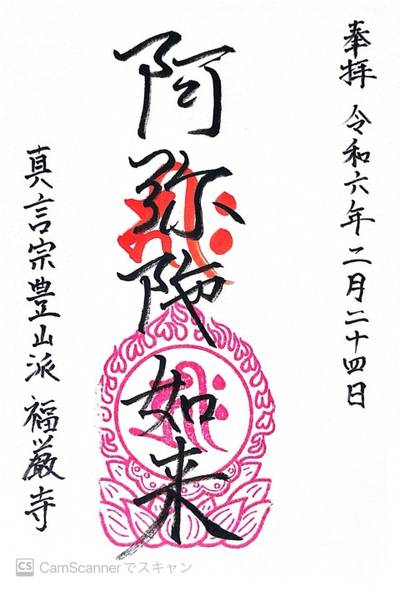 奉拝 令和六年二月二十四日
阿弥陀如来
真言宗豊山派 福厳寺
CS CamScannerでスキャン